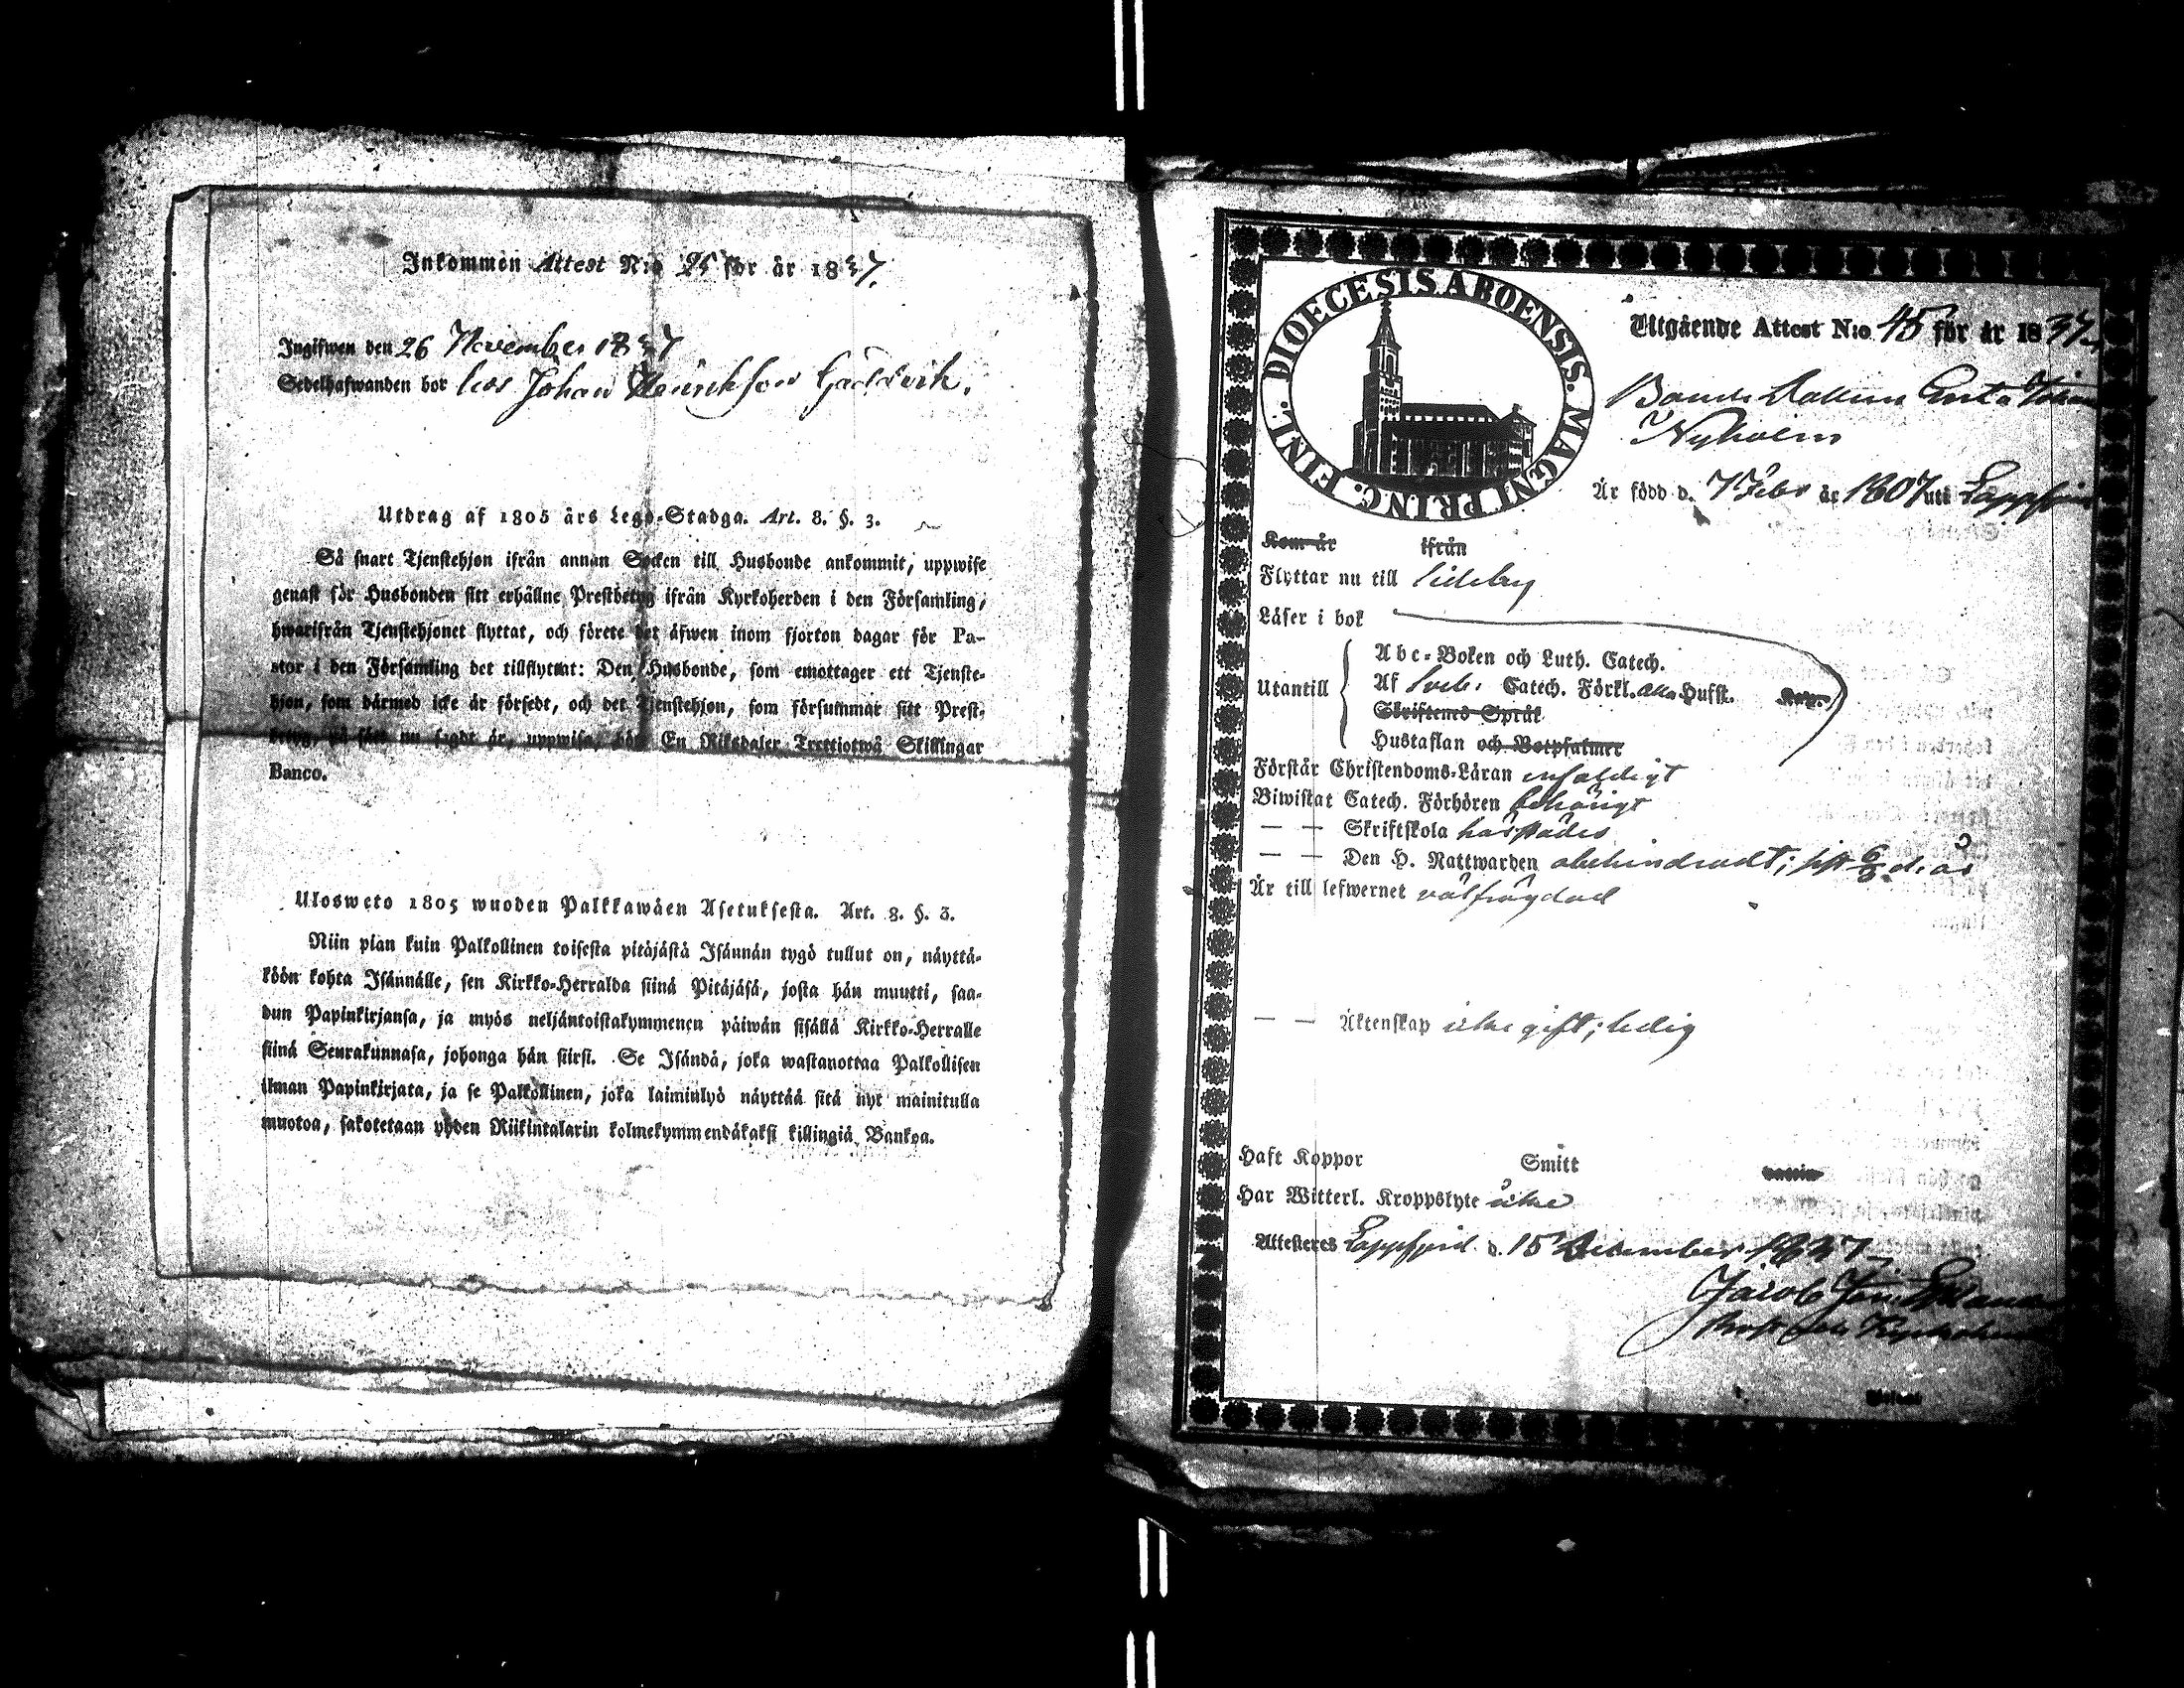 Inkommen Attest N:o 25 för år 1837.
Ingifwen den 26 November 1837
Sedelhafwanden bor hos Johan Henrikson Gäddvik.
Utdrag af 1805 års Lego-Stadga. Art. 8. §. 3.
Så snart Tjenstehjon ifrån annan Socken till Husbonde ankommit, uppwise
genast för Husbonden sitt erhållne Prestbetyg ifrån Kyrkoherden i den Församling,
hwarifrån Tjenstehjonet flyttat, och förete det äfwen inom fjorton dagar för Pa-
stor i den Församling det tillflyttat: Den Husbonde, som emottager ett Tjenste-
hjon, som därmed icke är försedt, och det Tjenstehjon, som försummar sitt Prest-
betyg, på sätt nu sagdt är, uppwisa, böte En Riksdaler Trettiotwå Skillingar
Banco.
Ulosweto 1805 wuoden Palkkawäen Asetuksesta. Art. 8. §. 3.
Niin pian kuin Palkollinen toisesta pitäjästä Isännän tygö tullut on, näyttä-
köön kohta Isännälle, sen Kirkko-Herralda siinä Pitäjäsä, josta hän muutti, saa-
dun Papinkirjansa, ja myös neljäntoistakymmenen päiwän sisällä Kirkko-Herralle
siinä Seurakunnasa, johonga hän siirsi. Se Isändä, joka wastanottaa Palkollisen
ilman Papinkirjata, ja se Palkollinen, joka laiminlyö näyttää sitä nyt mainitulla
muotoa, sakotetaan yhden Riikintalarin kolmekymmendäkaksi killingiä Bankoa.
DIOECESIS ABOENSIS. MAGNI PRINC. FINL.
Utgående Attest N:o 45 för år 1837
Bonde Nyholm
Är född d. 7 Febr år 1807 uti Lappfjerd
Kom år ifrån
Flyttar nu till Sideby
Läser i bok
Utantill
Abc-Boken och Luth. Catech.
Af Sveb. Catech. Förkl. Hufst.
Skriftenes Språk
Hustaflan och Botpsalmer
Förstår Christendoms-Läran enfaldigt
Biwistat Catech. Förhören behörigt
— — Skriftskola härstädes
— — Den H. Nattwarden obehindradt; sist d. år
Är till lefwernet välfrägdad
— — Äktenskap icke gift; ledig
Haft Koppor Smitt
Har Witterl. Kroppslyte icke
Attesteres Lappfjerd d. 15 December 1837
Jacob